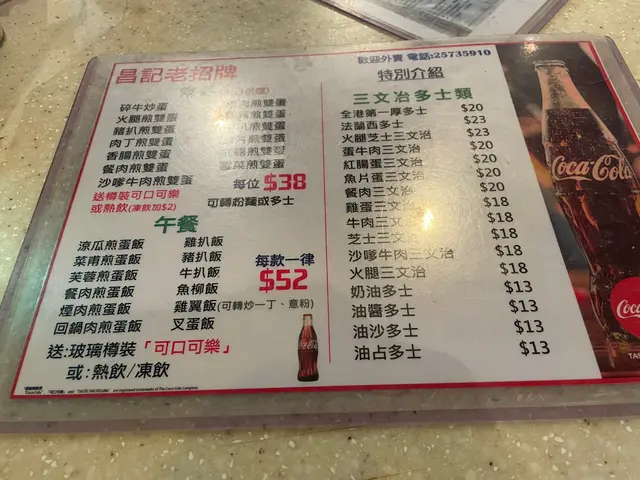 歡迎外賣 電話:25735910
昌記老招牌
碎牛炒蛋
火腿煎雙蛋
豬扒煎雙蛋
肉丁煎雙蛋
香腸煎雙蛋
餐肉煎雙蛋
沙嗲牛肉煎雙蛋
煎雙蛋
煎雙蛋
煎雙蛋
煎雙蛋
煎雙蛋
煎雙蛋
每位 $38
送樽裝可口可樂
或熱飲(凍飲加$2)
可轉粉麵或多士
午餐
涼瓜煎蛋飯
菜甫煎蛋飯
芙蓉煎蛋飯
餐肉煎蛋飯
煙肉煎蛋飯
回鍋肉煎蛋飯
雞扒飯
豬扒飯
牛扒飯
魚柳飯
雞翼飯(可轉炒一丁、意粉)
叉蛋飯
每款一律
$52
送:玻璃樽裝「可口可樂」
或:熱飲/凍飲
特別介紹
三文治多士類
全港第一厚多士 $20
法蘭西多士 $23
火腿芝士三文治 $23
蛋牛肉三文治 $20
紅腸蛋三文治 $20
魚片蛋三文治 $20
餐肉三文治 $20
雞蛋三文治 $18
牛肉三文治 $18
芝士三文治 $18
沙嗲牛肉三文治 $18
火腿三文治 $18
奶油多士 $13
油醬多士 $13
油沙多士 $13
油占多士 $13
Coca-Cola